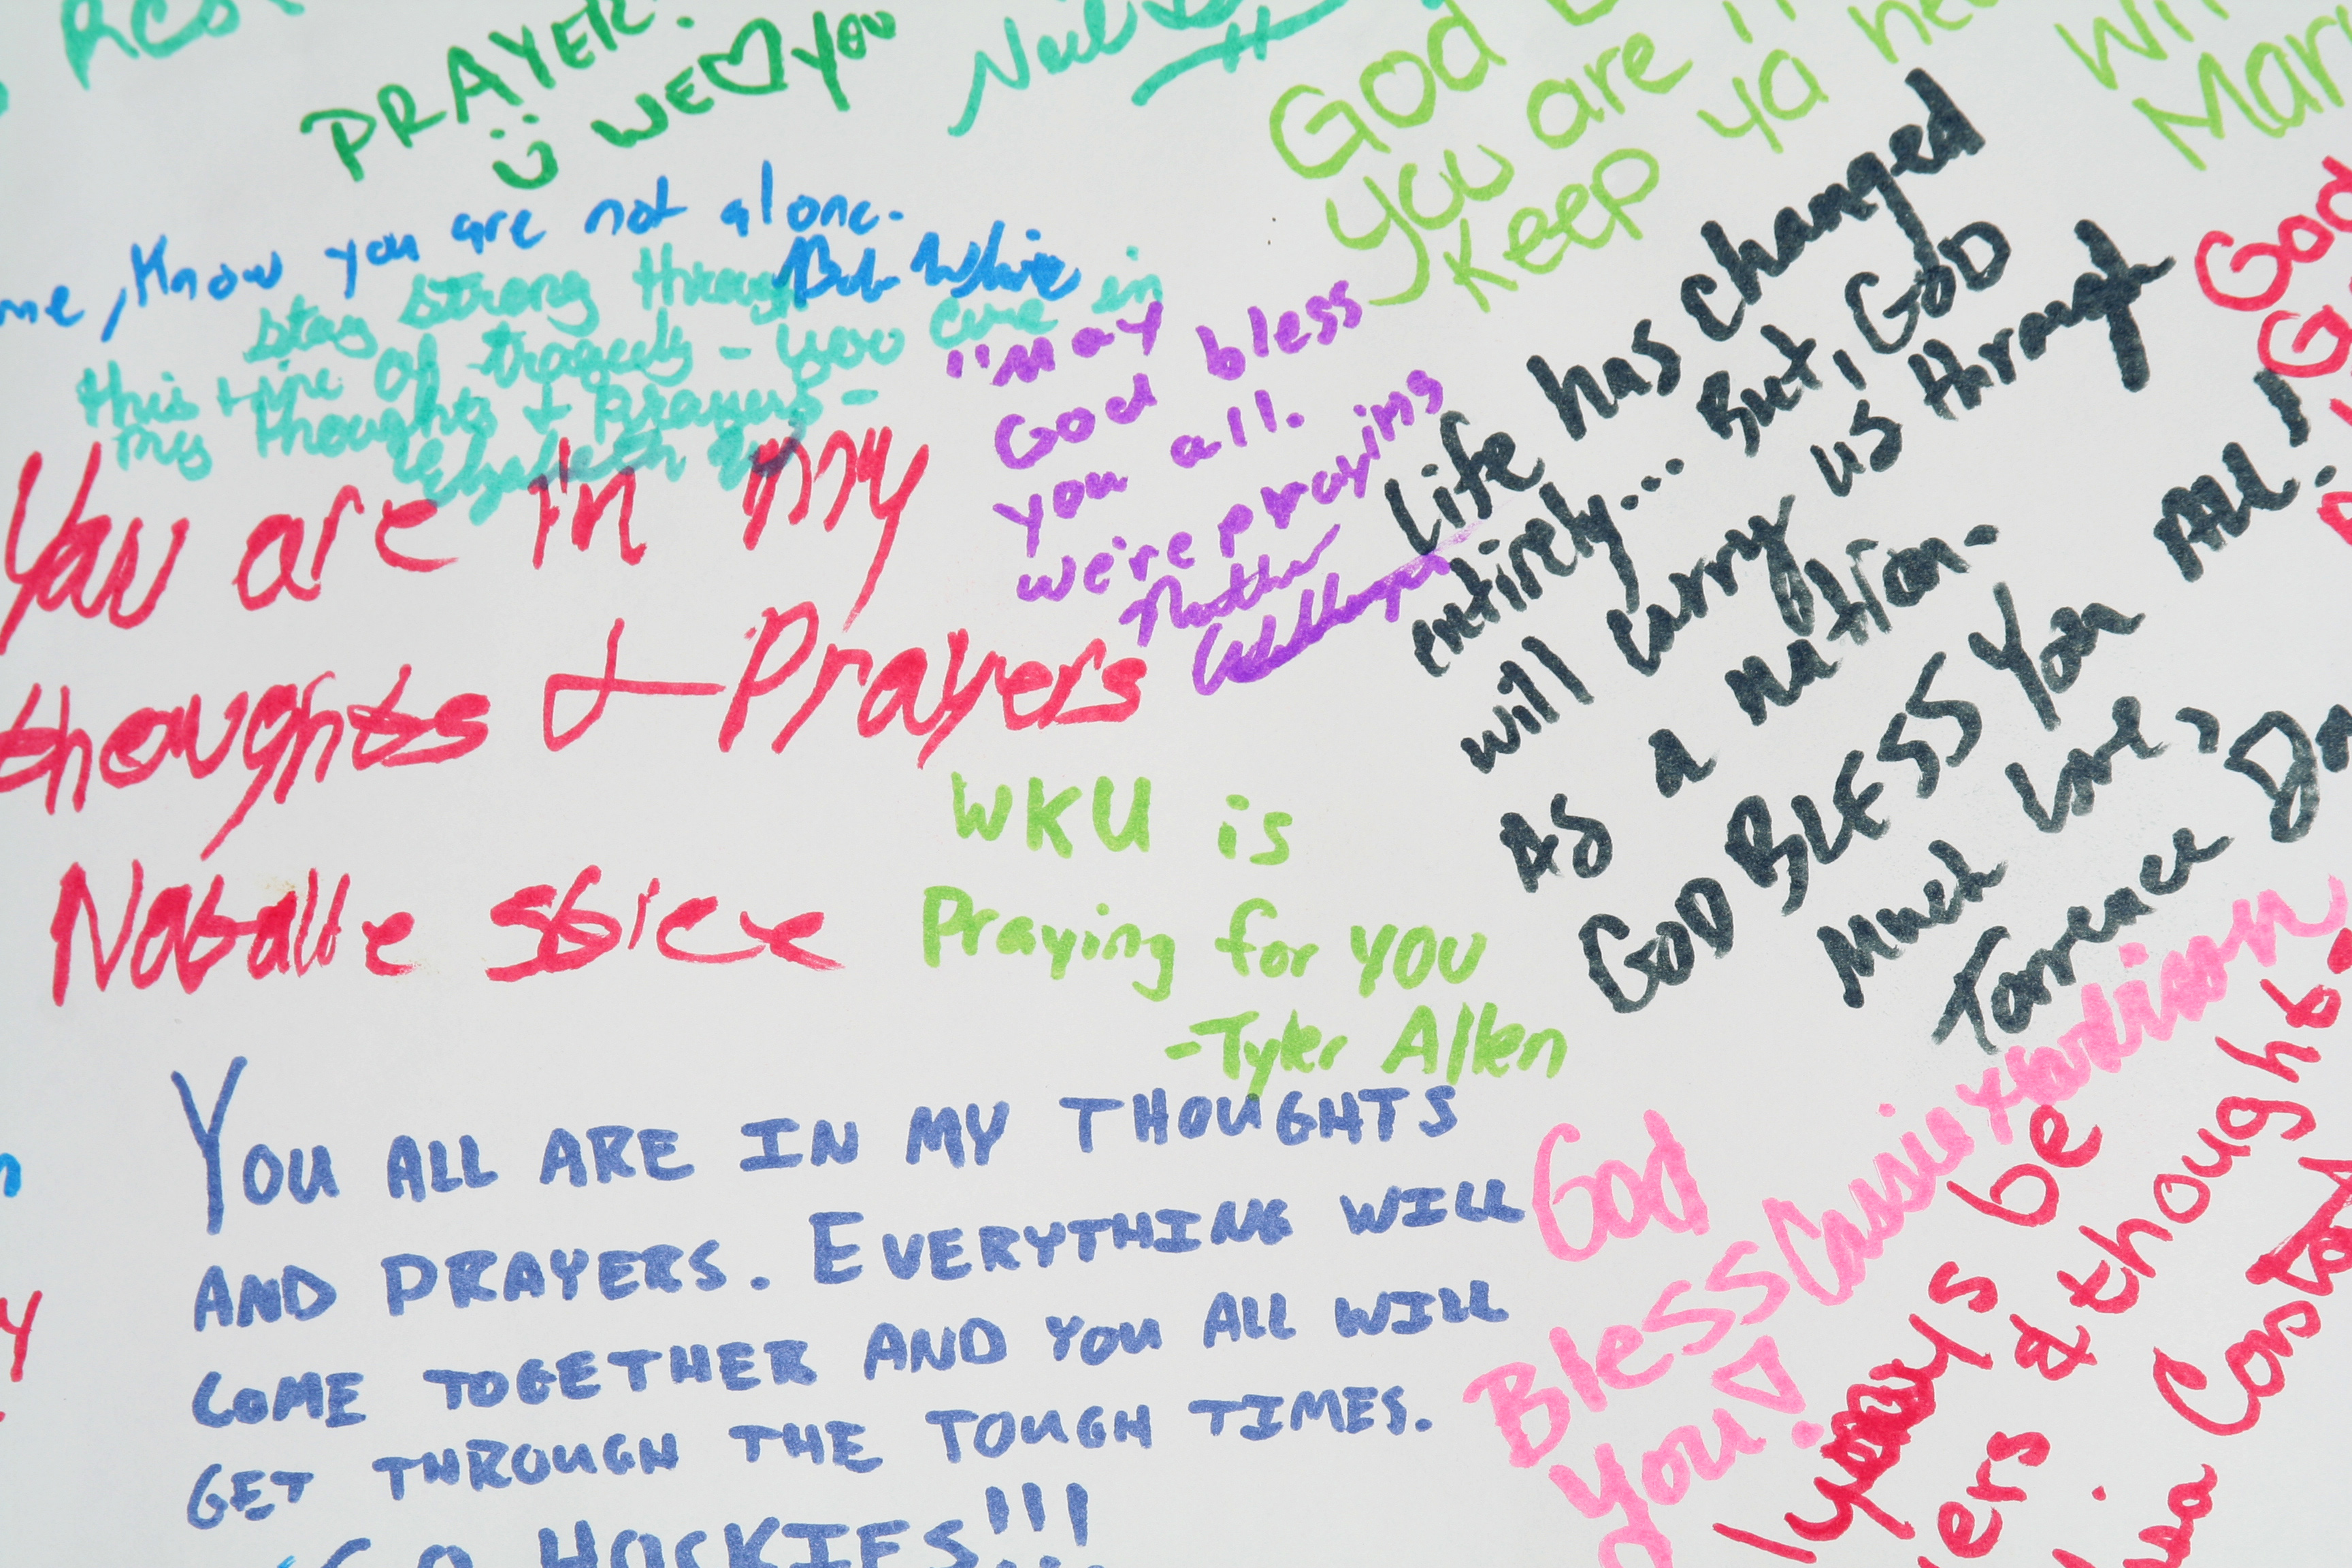 PRAYER.
WE ♡ YOU
Neil
God
you are
Keep ya
me, Know you are not alone.
Bob White
Stay strong through
this time of tragedy - you are in
my thoughts + prayers -
Elizabeth
"May
God bless
you all.
we're praying
Life has changed
entirely... But, GOD
will carry us through
As a nation.
GOD BLESS You All!
Much Love,
Torrence
God
You are in my
thoughts & Prayers
WKU is
Praying for YOU
-Tyler Allen
YOU ALL ARE IN MY THOUGHTS
AND PRAYERS. EVERYTHING WILL
COME TOGETHER AND YOU ALL WILL
GET THROUGH THE TOUGH TIMES.
GO HOCKIES!!!
God
Bless
You!
Cassie Hardison
be
& thoughts